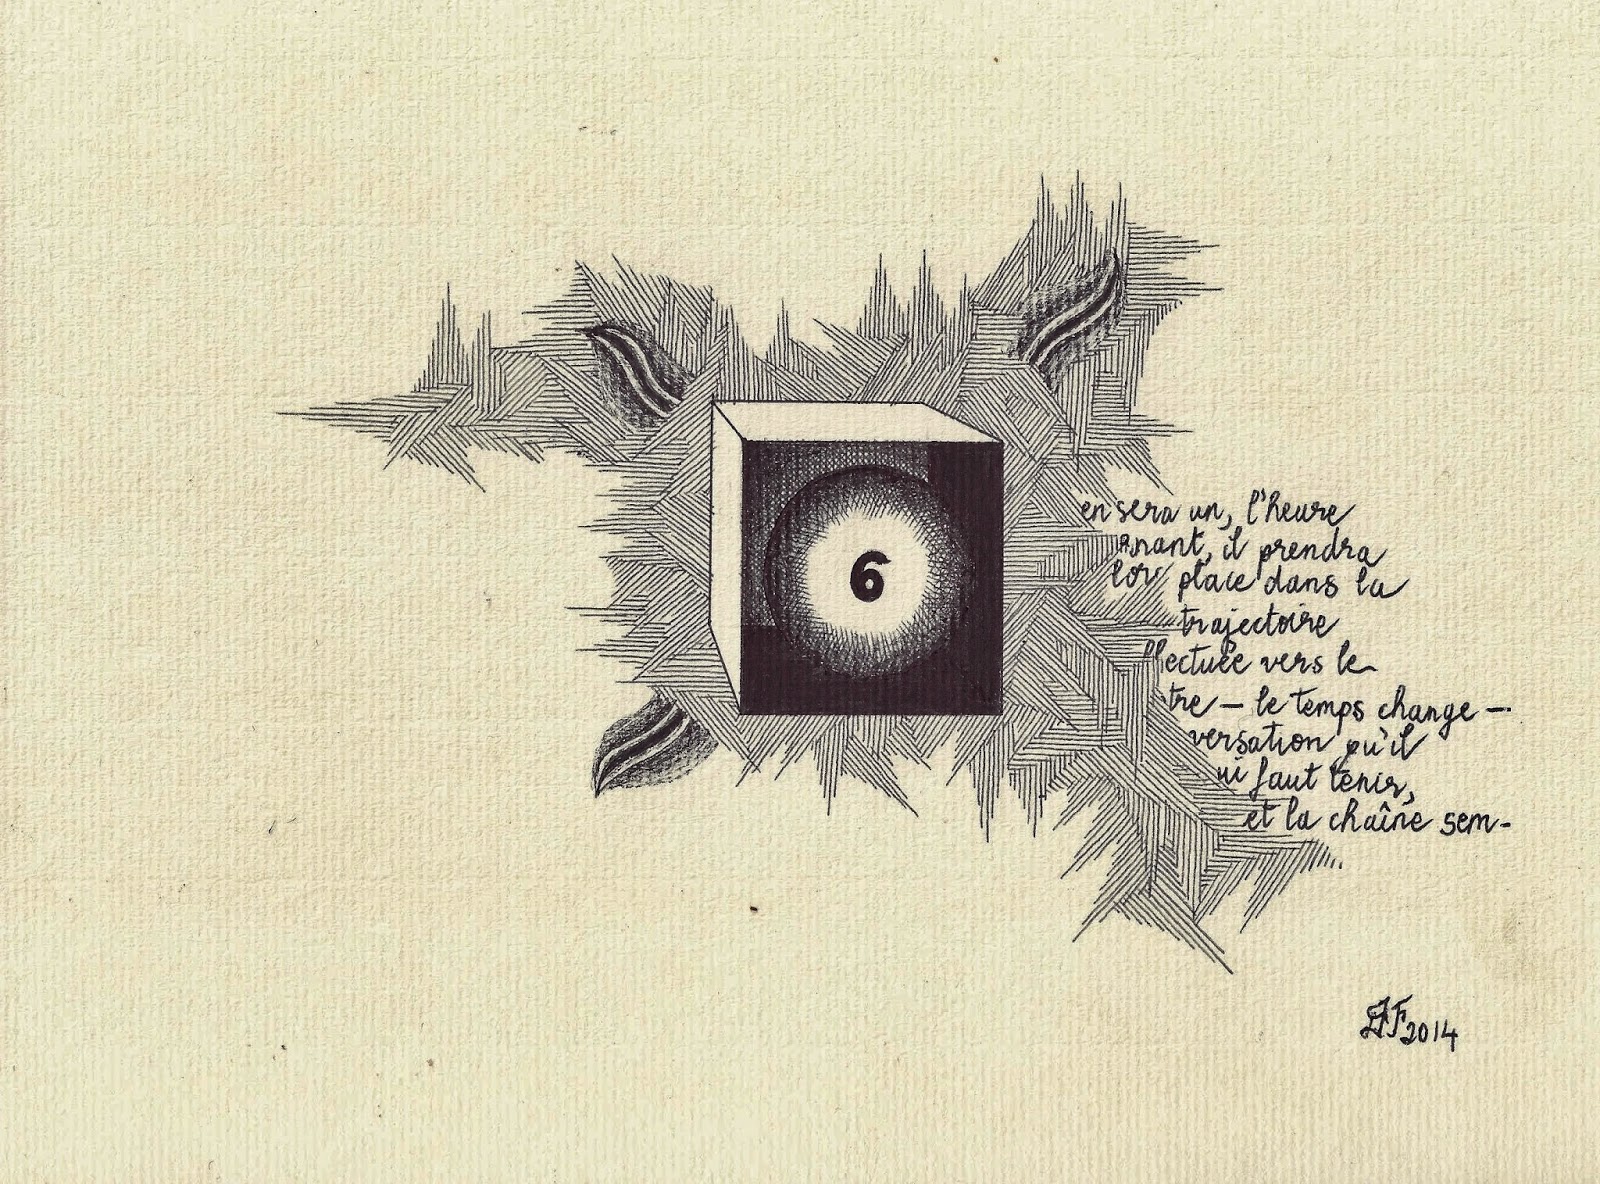 6
en sera un, l'heure
nant, il prendra
lor place dans la
trajectoire
ffectuée vers le
tre — le temps change —
versation qu'il
ui faut tenir,
et la chaîne sem-
...
2014